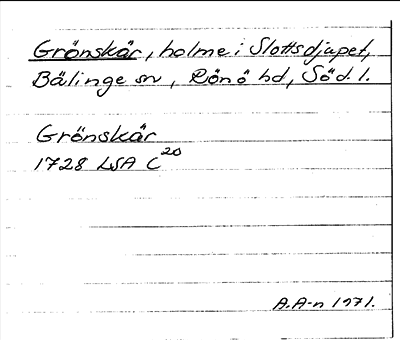 Grönskär, holme i Slottsdjupet,
Bälinge sn, Rönö hd, Söd. l.
Grönskär
1728 LSA C20
A.A-n 1971.